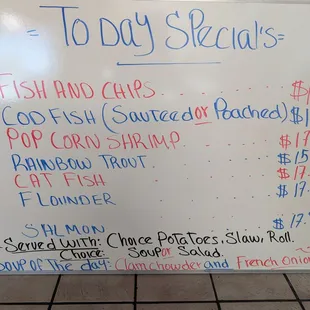 = Today Special's =
FISH AND CHIPS . . . . . . . $
COD FISH (Sauteed or Poached) $1
POP CORN SHRIMP . . . . . $17
RAINBOW TROUT . . . . . . $15
CAT FISH . . . . . . . . $17.
FLOUNDER . . . . . . . . $17.
SALMON . . . . . . . . . $17.
Served with: Choice Potatoes, Slaw, Roll.
Choice: Soup or Salad.
Soup of The day: Clam chowder and French Onion